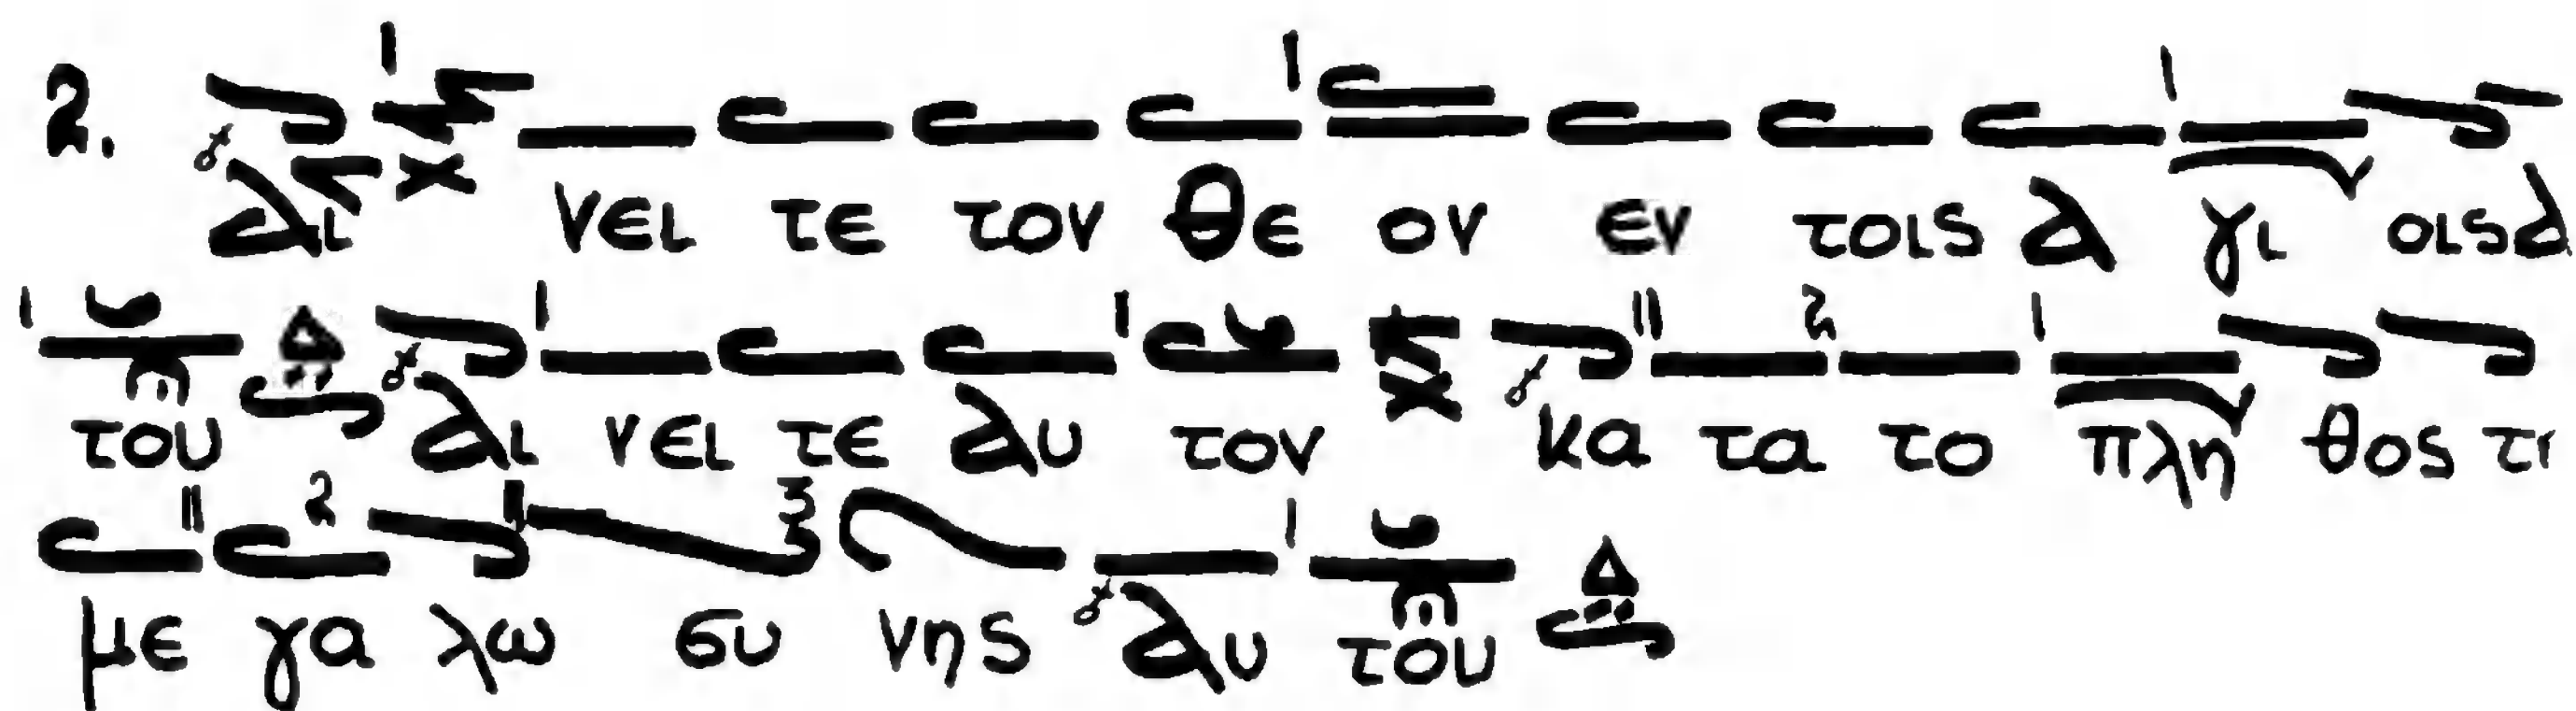 2. αι νει τε τον θε ον εν τοις α γι οις α
του Δ αι νει τε αυ τον κα τα το πλη θος τι
με γα λω συ νης αυ του Δ